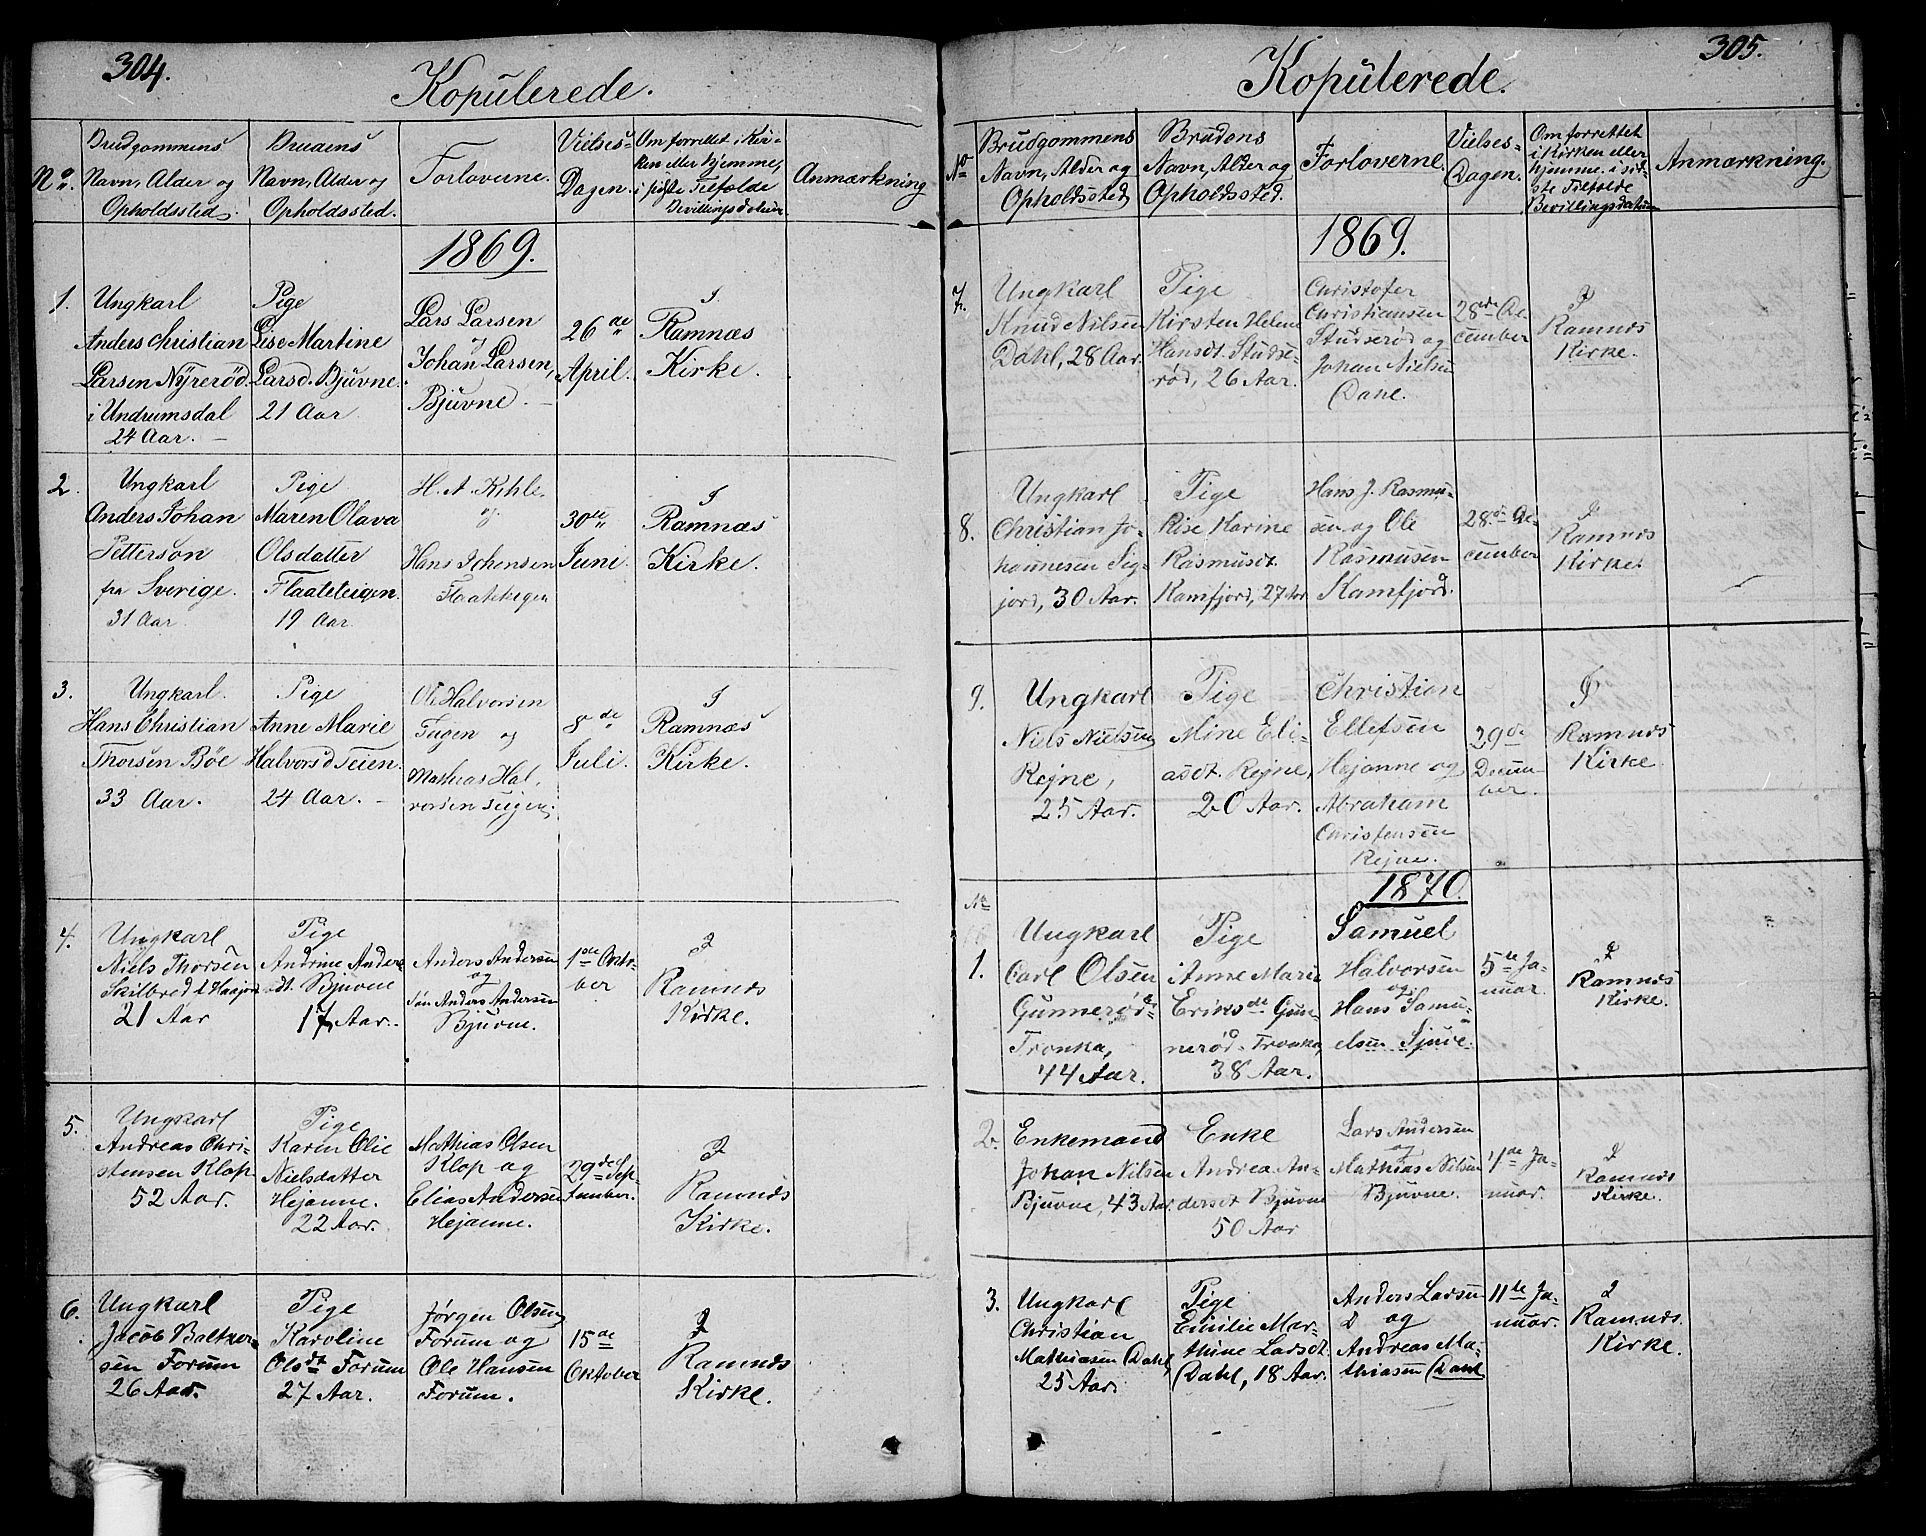 304.
Kopulerede.
No.
Brudgommens
Navn, Alder og
Opholdssted.
Brudens
Navn, Alder og
Opholdssted.
Forloverne.
Vielses-
Dagen.
Om forrettet i Kir-
ken eller hjemme,
i sidste Tilfælde
Bevillingsdatum
Anmærkning
1869.
1.
Ungkarl
Anders Christian
Larsen Nÿrerød
i Undrumsdal
24 Aar.
Pige
Lise Martine
Larsd. Bjuvne.
21 Aar
Lars Larsen
og
Johan Larsen,
Bjuvne
26de
April.
I
Ramnæs
Kirke.
2.
Ungkarl
Anders Johan
Petterson
fra Sverige.
31 Aar
Pige
Maren Olava
Olsdatter
Flaateteigen.
19 Aar
H. A. Kihle
og
Hans Johensen
Flaateteigen
30te
Juni.
I
Ramnæs
Kirke.
3.
Ungkarl.
Hans Christian
Thorsen Bøe
33 Aar.
Pige
Anne Marie
Halvorsd Teien.
24 Aar.
Ole Halvorsen
Teigen og
Mathias Hal,
vorsen Teigen
8de
Juli.
I
Ramnæs
Kirke.
4.
Ungkarl
Niels Thorsen
Skilbred i
21 Aar
Pige
Andrine Anders
dt. Bjuvne
17, Aar.
Anders Andersen
og
Søn Anders Andersen
Bjuvne.
1de Okto-
ber
I
Ramnæs
Kirke.
5.
Ungkarl
Andreas Chri-
stensen Klop
52 Aar.
Pige
Karen Olie
Nielsdatter
Hejanne.
22 Aar.
Mathias Olsen
Klop og
Elias Andersen
Hejanne.
29de Sep-
tember.
I
Ramnæs
Kirke.
6.
Ungkarl
Jacob Baltzer-
sen Forum
26 Aar.
Pige
Karoline
Olsdt Forum
27 Aar.
Jørgen Olsen
Forum og
Ole Hansen
Forum.
15de
Oktober
I
Ramnæs
Kirke.
305.
Kopulerede.
No
Brudgommens
Navn, Alder og
Opholdssted
Brudens
Navn, Alder og
Opholdssted.
Forloverne.
Vielses-
Dagen.
Om forrettet
i Kirken eller
hjemme. i sid-
ste Tilfælde
Bevillingsdatum
Anmærkning.
1869.
7.
Ungkarl
Knud Nilsen
Dahl, 28 Aar.
Pige
Kirsten Helene
Hansdt. Studse-
rød, 26 Aar.
Christofer
Christiansen
Studserød og
Johan Nielsen
Dahl.
28de De-
cember
I
Ramnæs
Kirke.
8.
Ungkarl
Christian Jo-
hannesen Sig-
jord, 30 Aar.
Pige
Karine
Rasmusdt.
Ramfjord, 27 Aar
Hans J. Rasmu-
sen og Ole
Rasmusen
Ramfjord.
28de De-
cember
I
Ramnæs
Kirke.
9.
Ungkarl
Niels Nielsen
Rejne,
25 Aar.
Pige
Mine Eli-
asdt. Rejne,
20 Aar.
Christian
Ellefsen
Hejanne og
Abraham
Christensen
Rejne.
29de
Decem-
ber.
I
Ramnæs
Kirke.
1870.
No
1.
Ungkarl
Carl Olsen
Gunnerød-
Tronka,
44 Aar.
Pige
Anne Marie
Eriksdt. Gun-
nerød-Tronka,
38 Aar.
Samuel
Halvorsen
og
Hans Samu-
elsen Sjuve.
5te Ja-
nuar.
I
Ramnæs
Kirke.
2.
Enkemand
Johan Nilsen
Bjuvne, 43 Aar.
Enke
Andrea An-
dersdt Bjuvne
50 Aar
Lars Andersen
og
Mathias Nilsen
Bjuvne.
7de Ja-
nuar.
I
Ramnæs
Kirke.
3.
Ungkarl
Christian
Mathiasen Dahl,
25 Aar.
Pige
Emilie Mar-
thine Larsdt.
Dahl, 18 Aar.
Anders Larsen
D og
Andreas Ma-
thiasen Dahl
11te Ja-
nuar.
I
Ramnæs
Kirke.